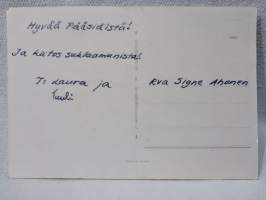 Hyvää Pääsiäistä!
Ja kiitos suklaamunista!
T: Laura ja
Tuuli
Rva Signe Ahonen